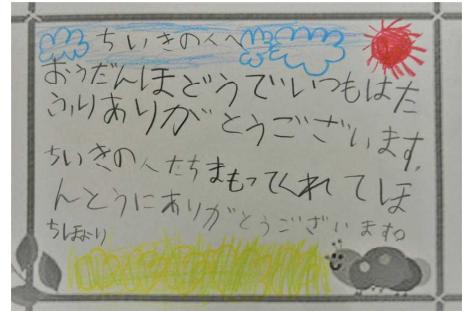 ちいきの人へ
おうだんほどうでいつもはた
ふりありがとうございます。
ちいきの人たちまもってくれてほ
んとうにありがとうございます。
ちほより